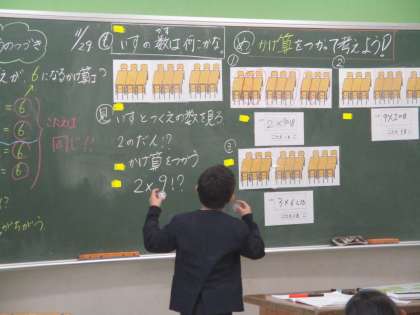 のつづき
えが、6になるかけ算は
= 6
= 6
= 6
= 6
こたえは
同じ!!
がちがう
11/29
も いすの数は何こかな。
かず なん
見 いすとつくえの数を見る
2のだん!?
かけ算をつかう
2×9!?
め かけ算をつかって考えよう!
①
2×9=18
②
9×2=18
③
3×6=18